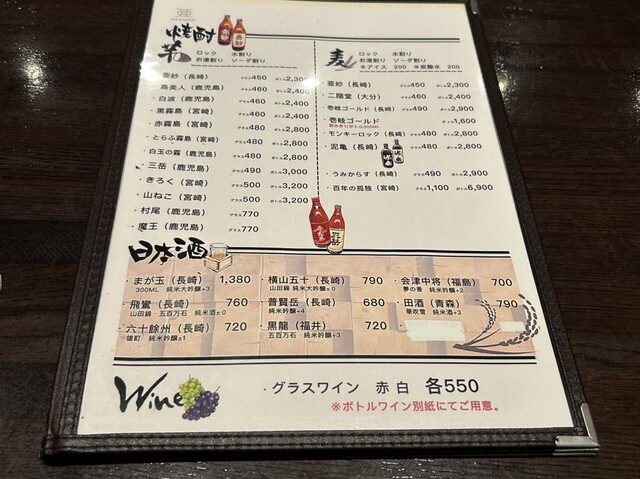 焼酎
芋
ロック 水割り
お湯割り ソーダ割り
・亜紗（長崎） グラス450 ボトル2,300
・島美人（鹿児島） グラス460 ボトル2,400
・白波（鹿児島） グラス460 ボトル2,400
・黒霧島（宮崎） グラス460 ボトル2,400
・赤霧島（宮崎） グラス480 ボトル2,800
・とらふ霧島（宮崎） グラス480 ボトル2,800
・白玉の霧（鹿児島） グラス480 ボトル2,800
・三岳（鹿児島） グラス490 ボトル2,900
・きろく（宮崎） グラス500 ボトル3,200
・山ねこ（宮崎） グラス500 ボトル3,200
・村尾（鹿児島） グラス770
・魔王（鹿児島） グラス770
麦
ロック 水割り
お湯割り ソーダ割り
※アイス 200 ※炭酸水 200
・亜紗（長崎） グラス450 ボトル2,300
・二階堂（大分） グラス460 ボトル2,400
・壱岐ゴールド（長崎） グラス490 ボトル2,900
・壱岐ゴールド ボトル1,600
・モンキーロック（長崎） グラス480 ボトル2,800
・泥亀（長崎） グラス480 ボトル2,800
・うみからす（長崎） グラス490 ボトル2,900
・百年の孤独（宮崎） グラス1,100 ボトル6,900
日本酒
・まが玉（長崎） 1,380
300ML 純米大吟醸+3
・飛鸞（長崎） 760
山田錦 純米酒±0
・六十餘州（長崎） 720
雄町 純米吟醸±1
・横山五十（長崎） 790
山田錦 純米大吟醸±0
・普賢岳（長崎） 680
純米吟醸+4
・黒龍（福井） 720
五百万石 純米吟醸+3
・会津中将（福島） 700
夢の香 純米吟醸+2
・田酒（青森） 790
華吹雪 純米酒+3
Wine
・グラスワイン 赤 白 各550
※ボトルワイン別紙にてご用意。